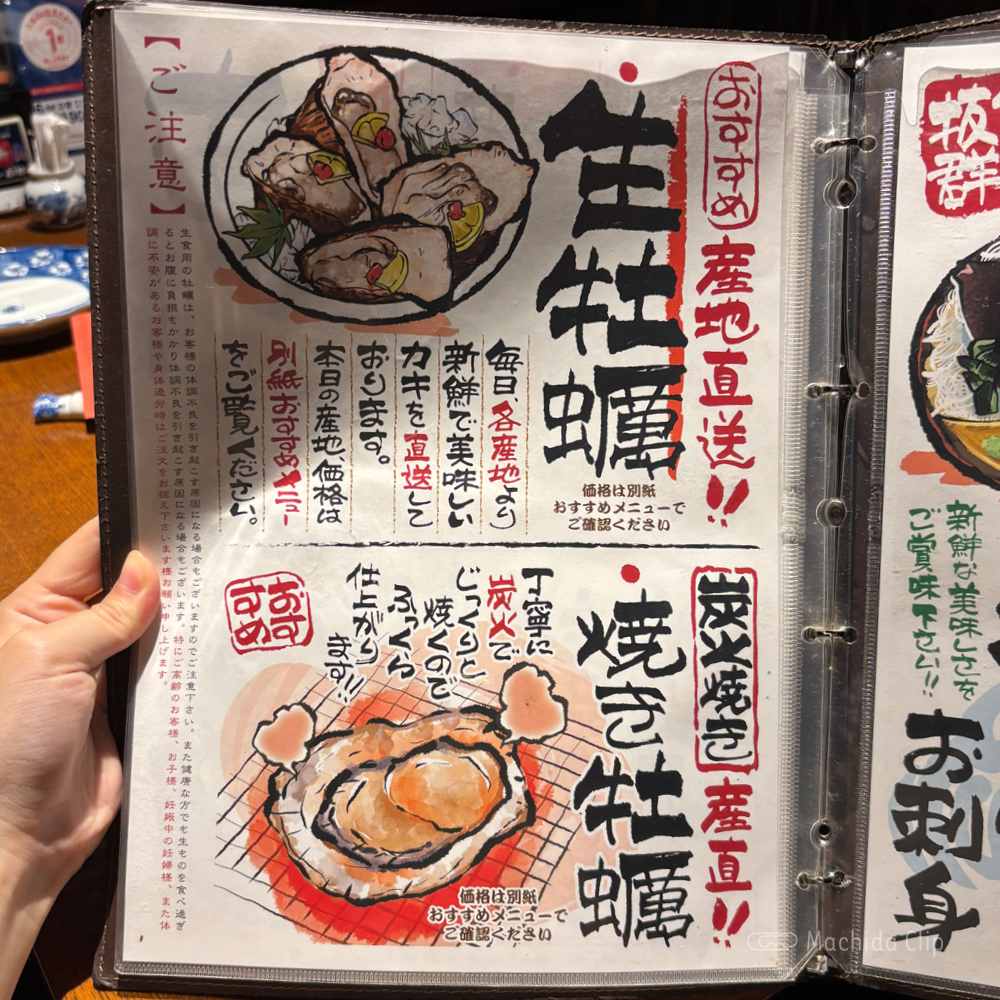 おすすめ
産地直送!!
生牡蠣
価格は別紙
おすすめメニューで
ご確認ください
毎日、各産地より
新鮮で美味しい
カキを直送して
おります。
本日の産地、価格は
別紙おすすめメニュー
をご覧ください。
炭火焼き
産直!!
焼き牡蠣
丁寧に
炭火で
じっくりと
焼くので
ふっくら
仕上がり
ます!!
おすすめ
価格は別紙
おすすめメニューで
ご確認ください
【ご注意】
生食用の牡蠣は、お客様の体調不良を引き起こす原因になる場合もございますのでご注意下さい。また健康な方でも生ものを食べ過ぎ
るとお腹に負担もかかり体調不良を引き起こす原因になる場合もございます。特にご高齢のお客様、お子様、妊娠中の妊婦様、また体
調に不安があるお客様や身体過労時はご注文をお控え下さいます様お願い申し上げます。
抜群
新鮮な美味しさを
ご賞味下さい!!
お刺身
Machida Clip